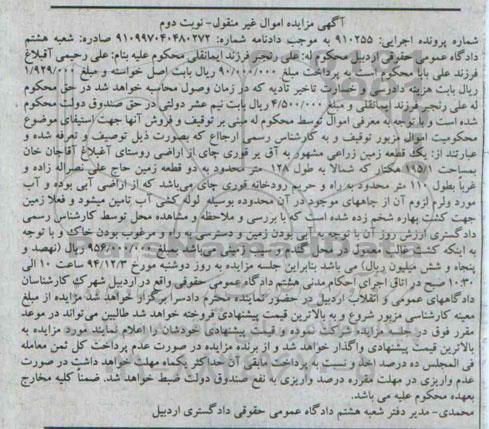 آگهی مزایده اموال غیر منقول- نوبت دوم
شماره پرونده اجرایی: ۹۱۰۲۵۵ به موجب دادنامه شماره: ۹۱۰۹۹۷۰۴۰۴۸۰۲۷۲ صادره: شعبه هشتم
دادگاه عمومی حقوقی اردبیل محکوم له: علی رنجبر فرزند ایمانقلی محکوم علیه بنام: علی رحیمی آقبلاغ
فرزند علی بابا محکوم است به پرداخت مبلغ ۹۰/۰۰۰/۰۰۰ ریال بابت اصل خواسته و مبلغ ۱/۹۲۹/۰۰۰
ریال بابت هزینه دادرسی و خسارت تاخیر تادیه که در زمان وصول محاسبه خواهد شد در حق محکوم
له علی رنجبر فرزند ایمانقلی و مبلغ ۴/۵۰۰/۰۰۰ ریال بابت نیم عشر دولتی در حق صندوق دولت محکوم
شده است و با توجه به معرفی اموال توسط محکوم له مبنی بر توقیف و فروش آنها جهت استیفای موضوع
محکومیت اموال مزبور توقیف و به کارشناس رسمی ارجاع که بصورت ذیل توصیف و تعرفه شده و
عبارتند از: یک قطعه زمین زراعی مشهور به آق یر قوری چای از اراضی روستای آغبلاغ آقاجان خان
بمساحت ۱/۹۵۱ هکتار که شمالا به طول ۱۲۸ متر محدود به دو قطعه زمین حاج علی نصراله زاده و
غربا بطول ۱۱۰ متر محدود به راه و حریم رودخانه قوری چای می‌باشد که از اراضی آبی بوده و آب
مورد ولرم لزوم آن از چاههای موجود در آن محدوده بوسیله لوله کشی آب تامین میشود و فعلا زمین
جهت کشت بهاره شخم زده شده است که با بررسی و ملاحظه و مشاهده محل توسط کارشناس رسمی
دادگستری ارزش روز آن با توجه به آبی بودن زمین و دسترسی به راه و مرغوب بودن خاک و با توجه
به اینکه کشت غالب معمول در محل گندم و سیب زمینی می‌باشد بمبلغ ۹۵۶/۰۰۰/۰۰۰ ریال (نهصد و
پنجاه و شش میلیون ریال) می باشد بنابراین جلسه مزایده به روز دوشنبه مورخ ۹۴/۱۲/۳ ساعت ۱۰ الی
۱۰:۳۰ صبح در اتاق اجرای احکام مدنی هشتم دادگاه عمومی حقوقی واقع در اردبیل شهرک کارشناسان
دادگاههای عمومی و انقلاب اردبیل در حضور نماینده محترم دادسرا برگزار خواهد شد مزایده از مبلغ
معینه کارشناسی مزبور شروع و به بالاترین قیمت پیشنهادی فروخته خواهد شد طالبین می‌تواند در موعد
مقرر فوق در جلسه مزایده شرکت نموده و قیمت پیشنهادی خودشان را اعلام نمایند مورد مزایده به
بالاترین قیمت پیشنهادی واگذار خواهد شد و از برنده مزایده در صورت عدم پرداخت کل ثمن معامله
فی المجلس ده درصد اخذ و نسبت به پرداخت مابقی آن حداکثر یکماه مهلت خواهد داشت در صورت
عدم واریزی در مهلت مقرره درصد واریزی به نفع صندوق دولت ضبط خواهد شد. ضمنا کلیه مخارج
بعهده محکوم علیه می باشد.
محمدی- مدیر دفتر شعبه هشتم دادگاه عمومی حقوقی دادگستری اردبیل